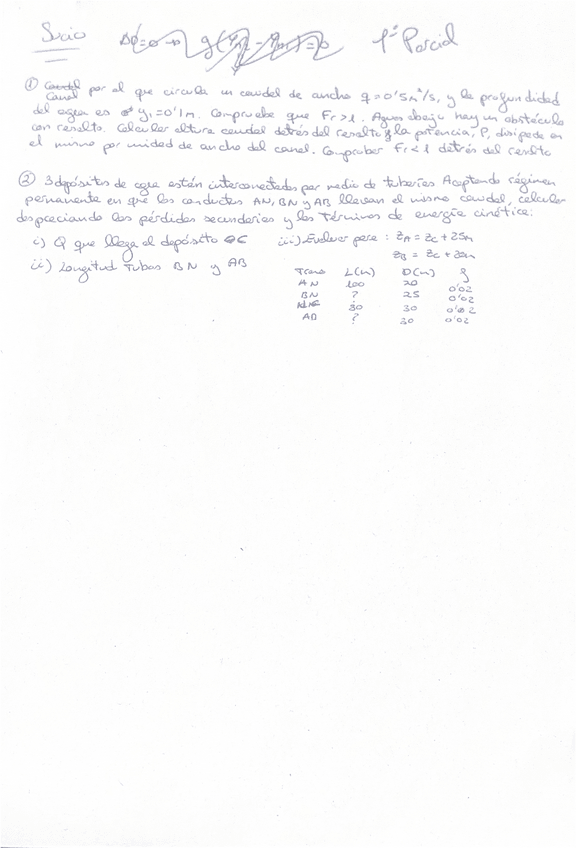 Sucio 1º Parcial
① Canal por el que circula un caudal de ancho q = 0'5 m²/s, y la profundidad
del agua es y₁ = 0'1m. Compruebe que Fr > 1. Aguas abajo hay un obstáculo
con resalto. Calcular altura caudal detrás del resalto y la potencia, P, disipada en
el mismo por unidad de ancho del canal. Comprobar Fr < 1 detrás del resalto
② 3 depósitos de agua están interconectados por medio de tuberías. Aceptando régimen
permanente en que los conductos AN, BN y AB llevan el mismo caudal, calcular
despreciando las pérdidas secundarias y los términos de energía cinética:
i) Q que llega al depósito C
ii) Longitud tubos BN y AB
iii) Evaluar para : zA = zC + 25m
zB = zC + 20m
Tramo L(m) D(m) f
AN 100 20 0'02
BN ? 25 0'02
30 30 0'02
AB ? 30 0'02